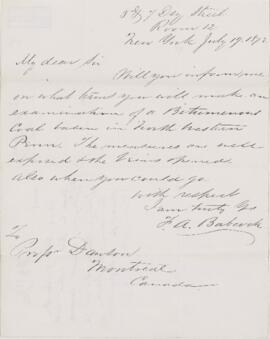 5 & 7 Dey Street
Room 12
New York July 19. 1872
My dear Sir
Will you inform me
on what terms you will make an
examination of a Bitumenous
Coal basin in North Western
Penn. The measures are well
exposed & the Veins opened.
Also when you could go
With respect
I am truly Yrs
F. A. Babcock
To
Profr Dawson
Montreal
Canada